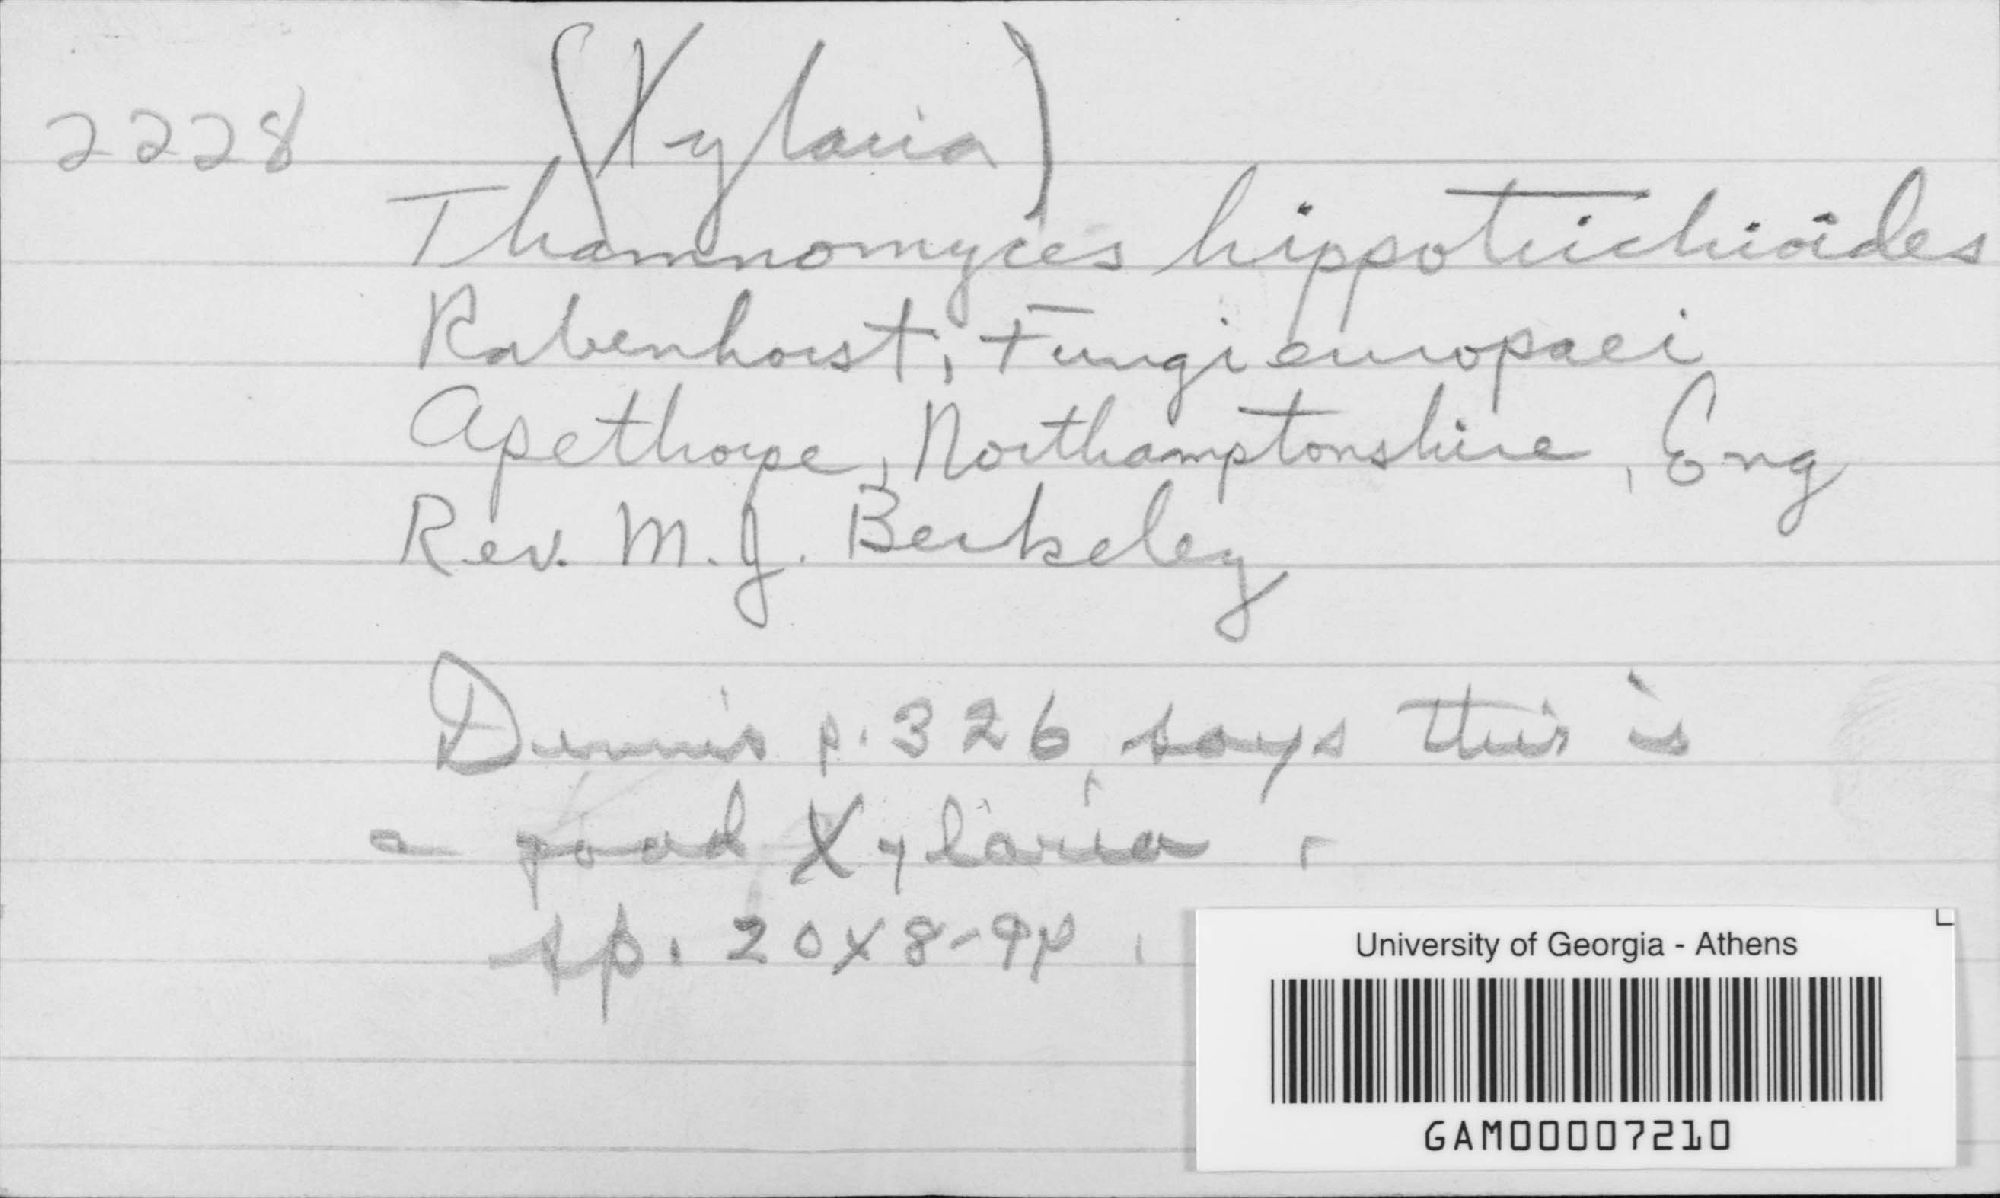 2228 (Xylaria)
Thamnomyces hippotrichioides
Rabenhorst, Fungi europaei
Apethorpe, Northamptonshire, Eng
Rev. M. J. Berkeley
Dennis p. 326, says this is
a good Xylaria.
sp. 20x8-9µ.
University of Georgia - Athens
GAM00007210